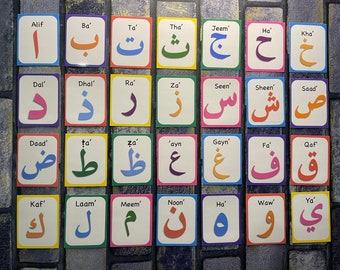 Alif Ba' Ta' Tha' Jeem' Ha' Kha'
ا ب ت ث ج ح خ
Dal' Dhal' Ra' Za' Seen' Sheen' Saad'
د ذ ر ز س ش ص
Daad' ṭa' ẓa' 'ayn Gayn' Fa' Qaf'
ض ط ظ ع غ ف ق
Kaf' Laam' Meem' Noon' Ha' Waw' Ya'
ك ل م ن ه و ي